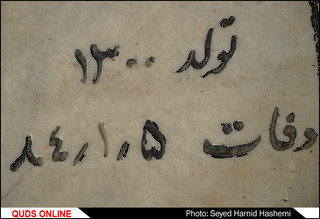 تولد ۱۳۰۰
وفات ۸٤٫۱٫۵
QUDS ONLINE
Photo: Seyed Hamid Hashemi